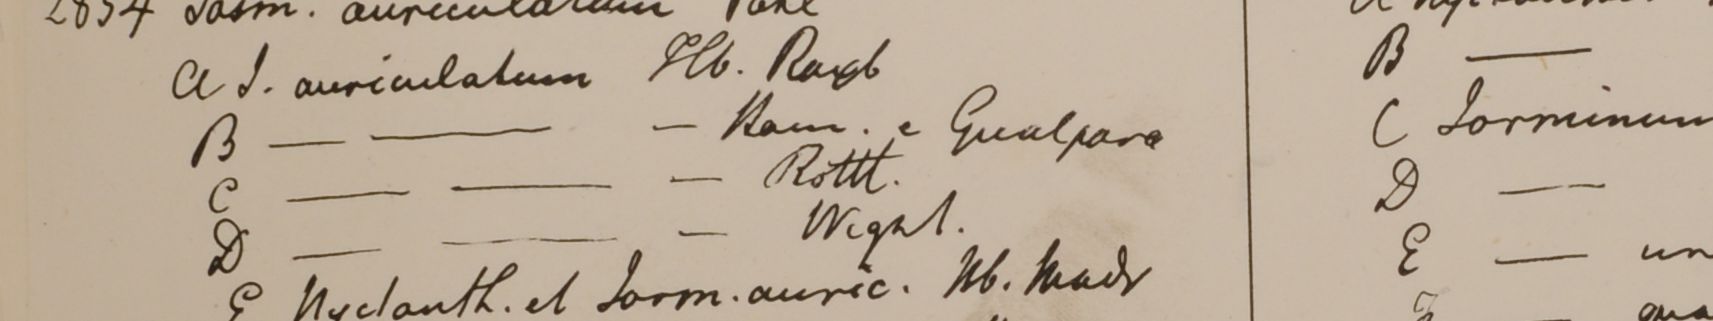 2854 Jasm. auriculatum Vahl
a J. auriculatum Hb. Roxb
B — — — Ham. e Gualpara
C — — — Rottl.
D — — — Wight.
E Nyctanth. et Jasm. auric. Hb. Madr
B —
C Jasminum
D —
E — un